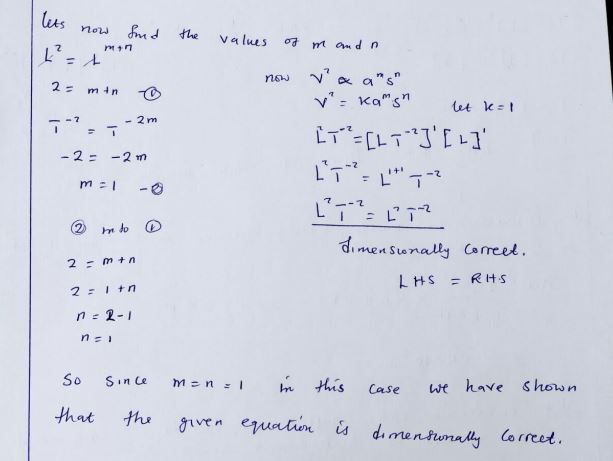 lets now find the values of m and n
L² = L^m+n
2 = m+n — ①
T⁻² = T^-2m
-2 = -2m
m = 1 — ②
② into ①
2 = m+n
2 = 1+n
n = 2-1
n = 1
now V² ∝ aᵐsⁿ
V² = Kaᵐsⁿ let k = 1
L²T⁻² = [LT⁻²]¹ [L]¹
L²T⁻² = L¹⁺¹ T⁻²
L²T⁻² = L²T⁻²
dimensionally correct.
LHS = RHS
So since m = n = 1 in this case we have shown
that the given equation is dimensionally correct.